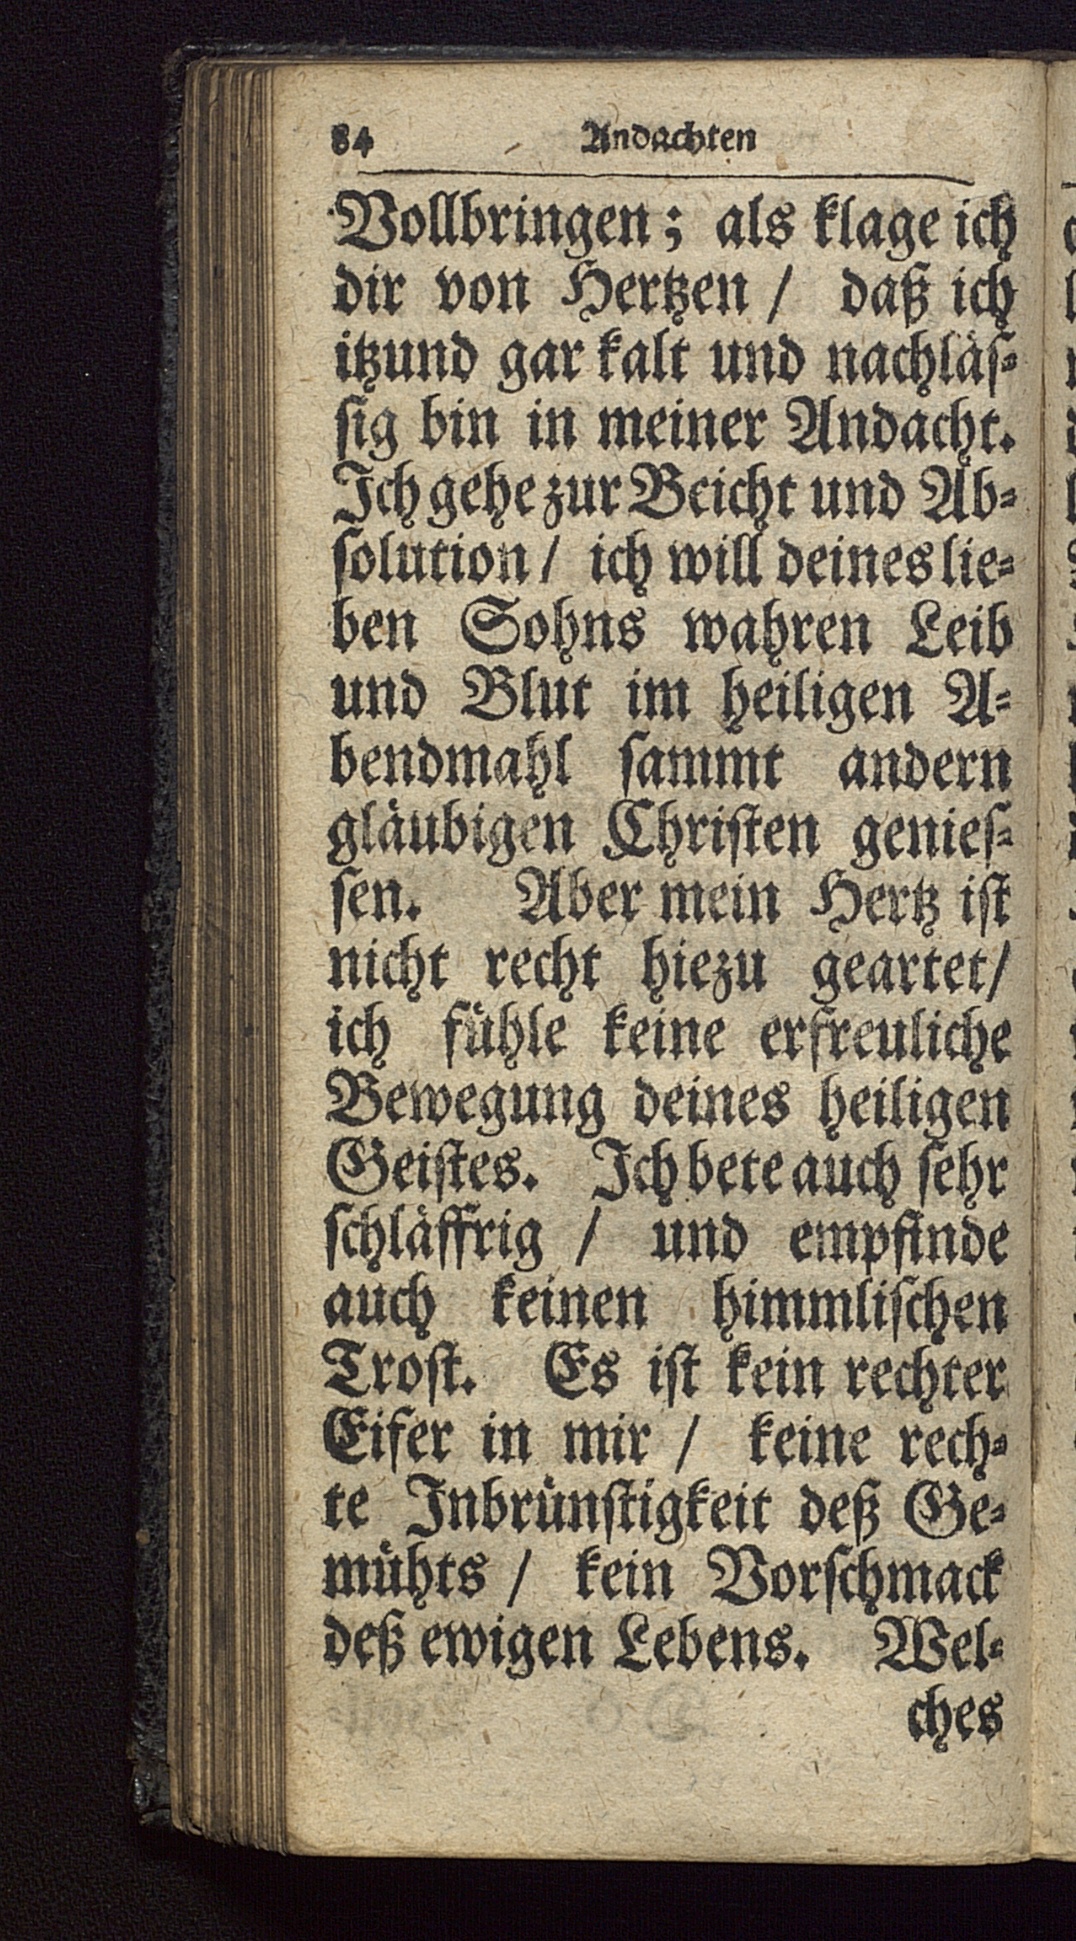 84 Andachten
Vollbringen; als klage ich
dir von Hertzen / daß ich
itzund gar kalt und nachläs-
sig bin in meiner Andacht.
Ich gehe zur Beicht und Ab-
solution / ich will deines lie-
ben Sohns wahren Leib
und Blut im heiligen A-
bendmahl sammt andern
gläubigen Christen genies-
sen. Aber mein Hertz ist
nicht recht hiezu geartet /
ich fühle keine erfreuliche
Bewegung deines heiligen
Geistes. Ich bete auch sehr
schläffrig / und empfinde
auch keinen himmlischen
Trost. Es ist kein rechter
Eifer in mir / keine rech-
te Inbrünstigkeit deß Ge-
mühts / kein Vorschmack
deß ewigen Lebens. Wel-
ches